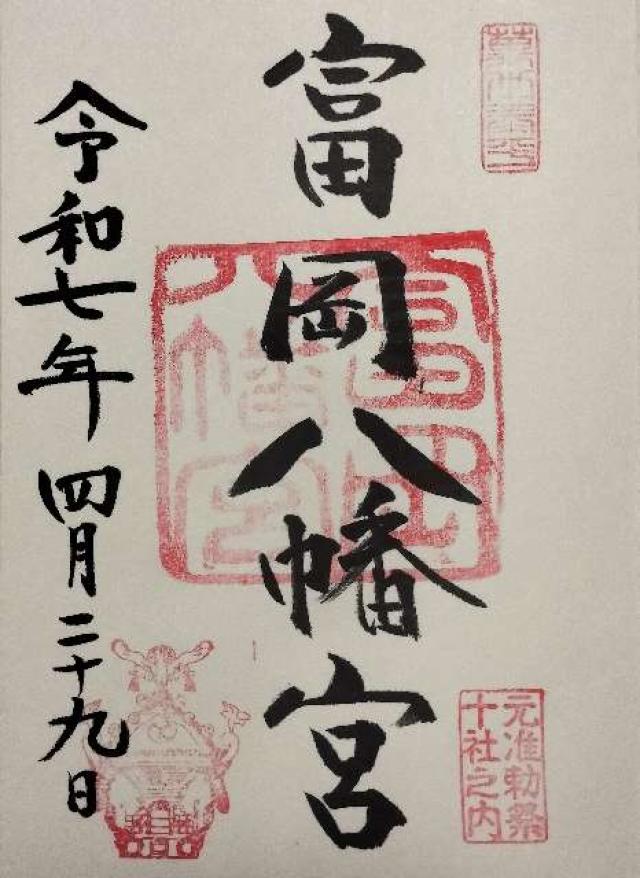 元准勅祭
十社之内
富岡八幡宮
富岡
八幡宮
令和七年四月二十九日